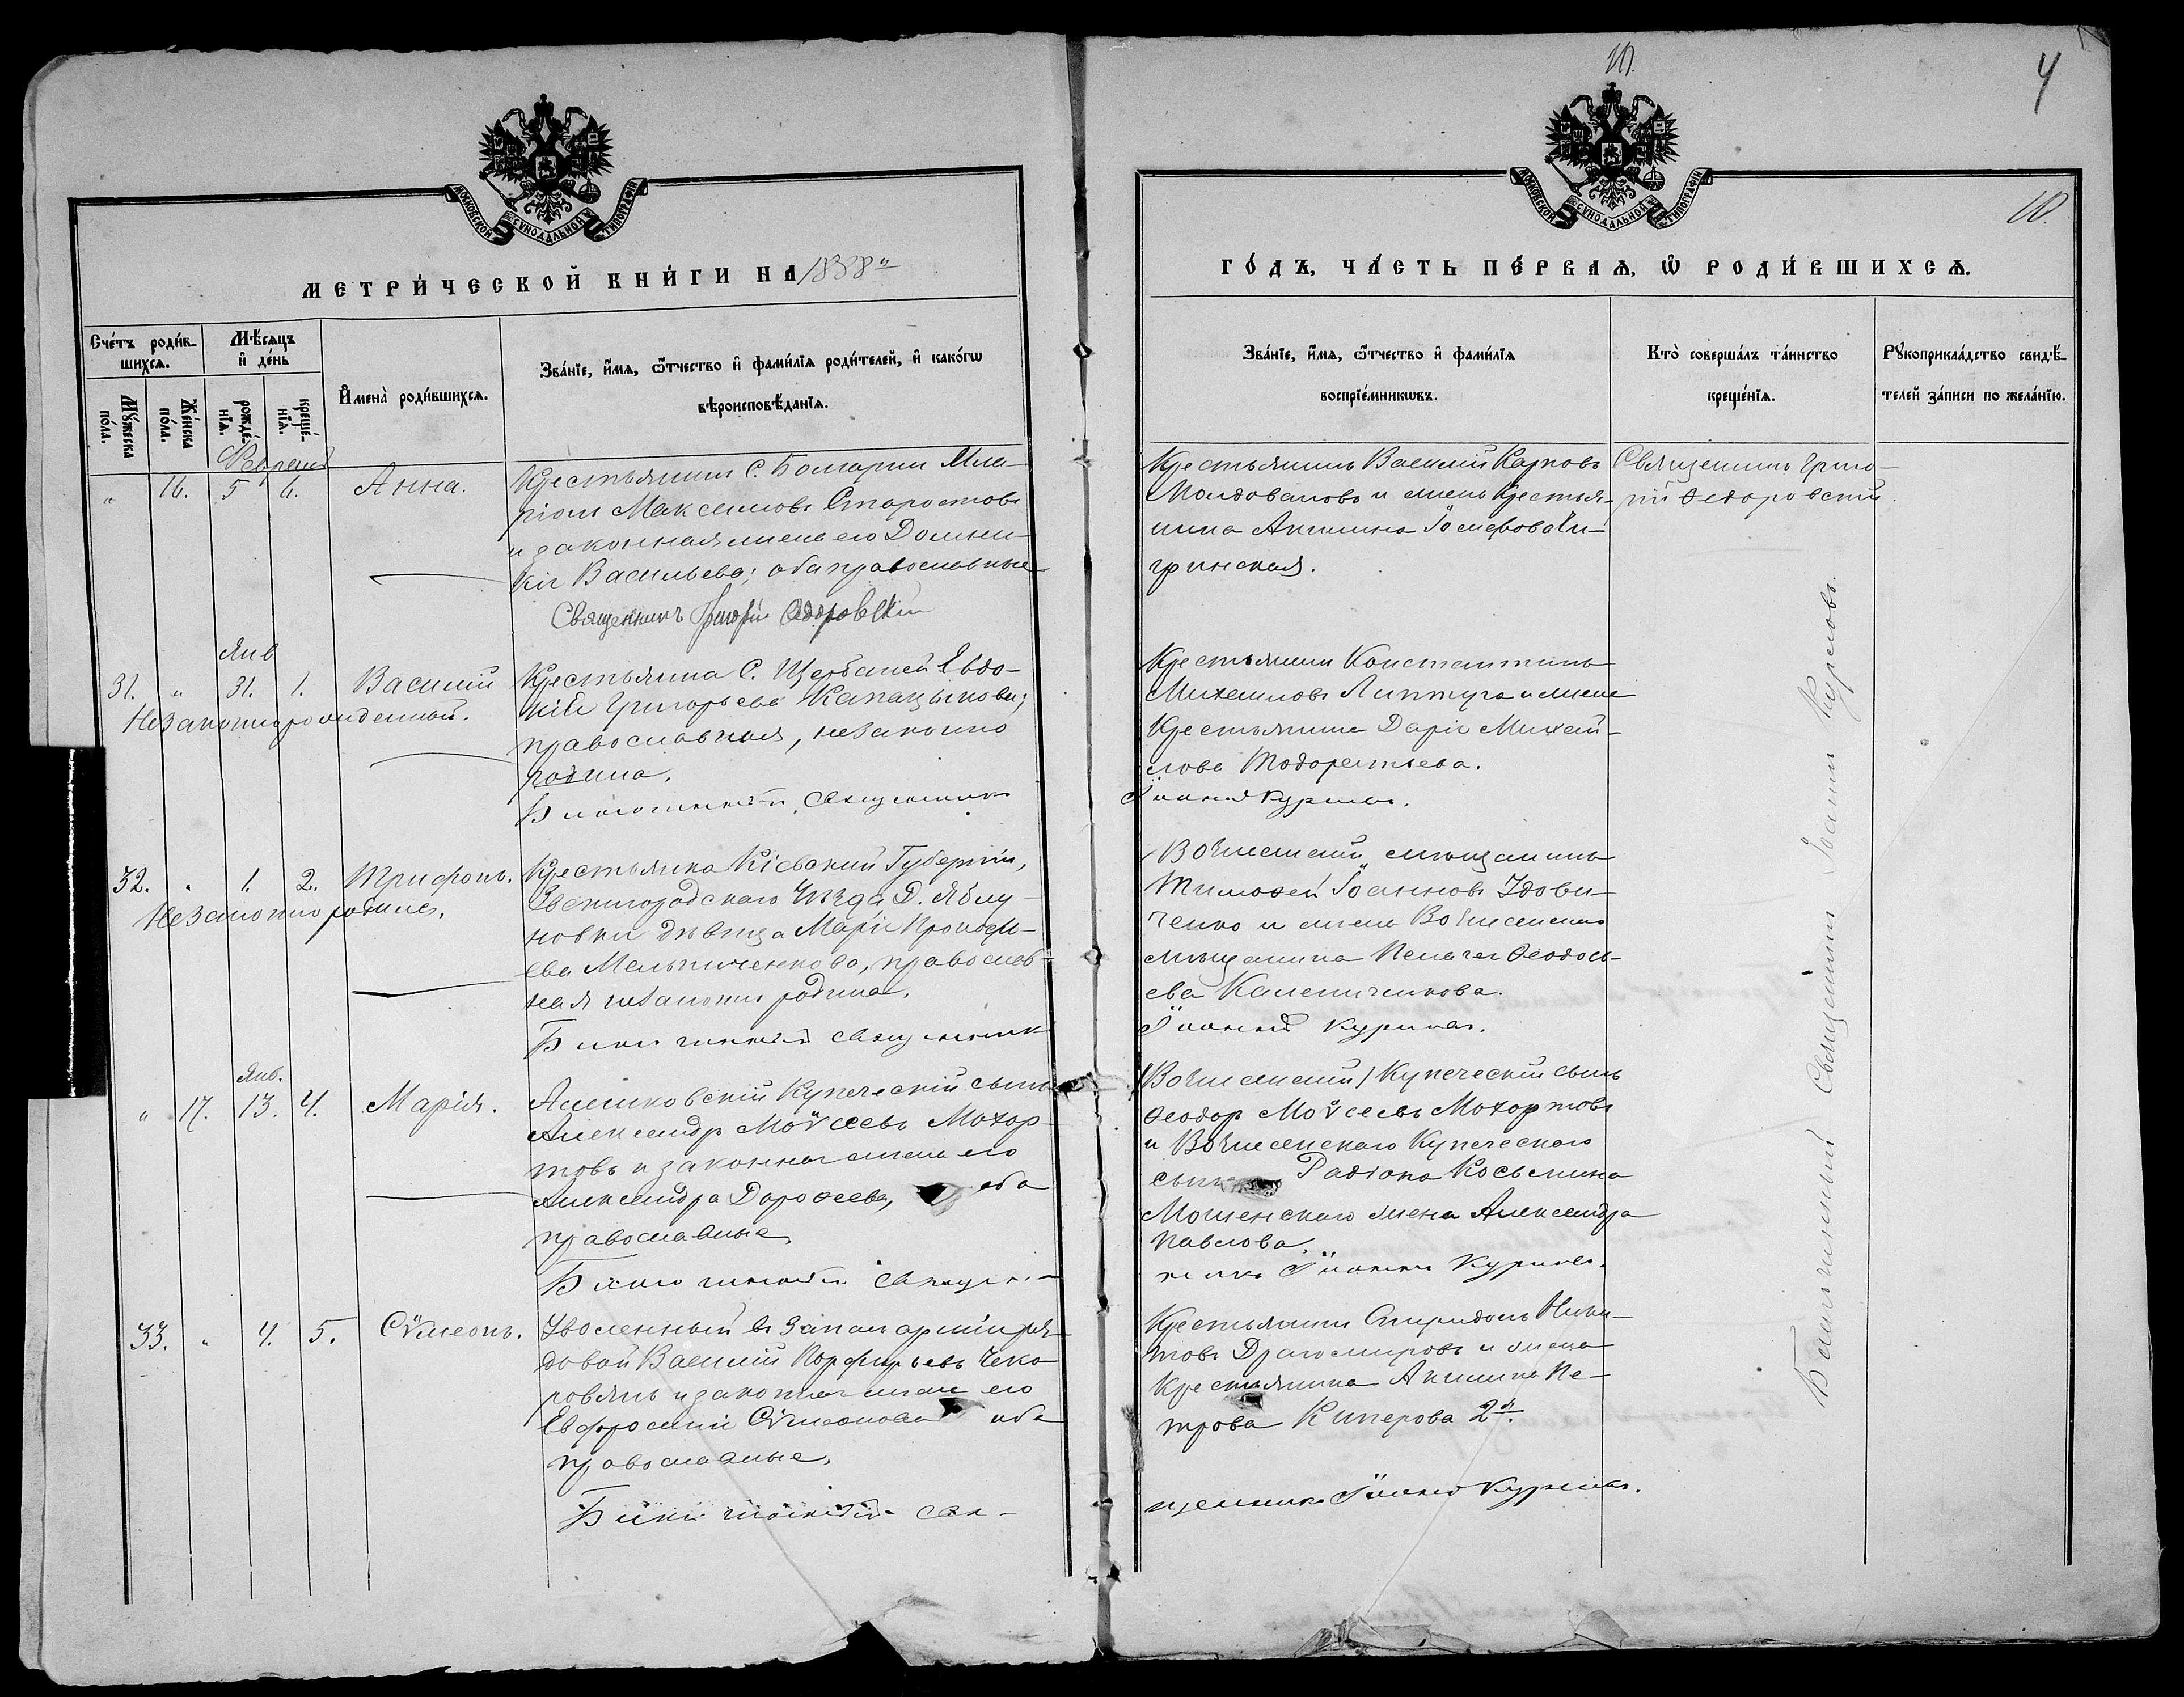 10.
4
10.
МОСКОВСКОЙ СУНОДАЛЬНОЙ ТИПОГРАФІИ
МОСКОВСКОЙ СУНОДАЛЬНОЙ ТИПОГРАФІИ
МЕТРИ́ЧЕСКОЙ КНИ́ГИ НА 1888й
ГО́ДЪ, ЧА́СТЬ ПЕ́РВАѦ, Ѡ РОДИ́ВШИХСѦ.
Сче́тъ роди́вшихсѧ.
Мꙋ́жеска по́ла.
Же́нска по́ла.
Мѣ́сѧцъ и҆ де́нь
рожде́нїѧ.
креще́нїѧ.
И҆мена̀ роди́вшихсѧ.
Зва́нїе, и҆́мѧ, ѻ҆́тчество и҆ фами́лїѧ роди́телей, и҆ како́гѡ
вѣроисповѣ́данїѧ.
Зва́нїе, и҆́мѧ, ѻ҆́тчество и҆ фами́лїѧ
воспрїе́мникѡвъ.
Кто̀ соверша́лъ та́инство
креще́нїѧ.
Рꙋкоприкла́дство свидѣ́телей за́писи по жела́нїю.
Февраль
" 16. 5 6. Анна.
Крестьянинъ С. Болгарки Ила-
ріонъ Максимовъ Старостовъ
и законная жена его Домни-
кія Васильева; оба православные
Священникъ Григорій Ѳедоровскій
Крестьянинъ Василій Карповъ
Молдовановъ и жена крестья-
нина Акилина Іосифова
гринская.
Священникъ Григо-
рій Ѳедоровскій.
Янв
31. " 31. 1. Василій
Незаконнорожденный.
Крестьянка С. Щербаней Евдо-
кія Григорьева
православная, незаконно
родила.
Благочинный Священникъ
Крестьянинъ Константинъ
Михаиловъ Липтуга и жена
Крестьянина Дарія Михай-
лова Тодорентьева.
Іоаннъ Куриловъ.
32. " 1. 2. Трифонъ.
Незаконнорожден.
Крестьянка Кіевской Губерніи,
Звенигородскаго Уѣзда Д. Яблу-
новки дѣвица Марія Прокофі-
ева Мельниченкова, православ-
ная незаконно родила.
Благочинный Священникъ
Вознесенскій мѣщанинъ
Тимоѳей Іоанновъ Удови-
ченко и жена Вознесенскаго
мѣщанина Пелагея Ѳеодось-
ева Калениченкова.
Іоаннъ Куриловъ.
Янв.
" 17. 13. 4. Марія.
Алешковскій Купеческій сынъ
Александръ Моѵсеевъ Мохор-
товъ и законная жена его
Александра Дороѳеева, оба
православные
Благочинный Священ-
Вознесенскій Купеческій сынъ
Ѳеодоръ Моѵсеевъ Мохортовъ
и Вознесенскаго Купеческаго
сына Радіона Косьмина
Мошенскаго жена Александра
Павлова.
никъ Іоаннъ Куриловъ.
33. " 4. 5. Сѵмеонъ.
Уволенный въ Запасъ арміи ря-
довой Василій Порфирьевъ Чеко-
ровянъ и законная жена его
Евфросинія Сѵмеонова оба
православные.
Благочинный Свя-
Крестьянинъ Спиридонъ Ники-
товъ Драгомировъ и жена
Крестьянина Акилина Пе-
трова Киперова 2я.
щенникъ Іоаннъ Куриловъ.
Благочинный Священникъ Іоаннъ Куриловъ.